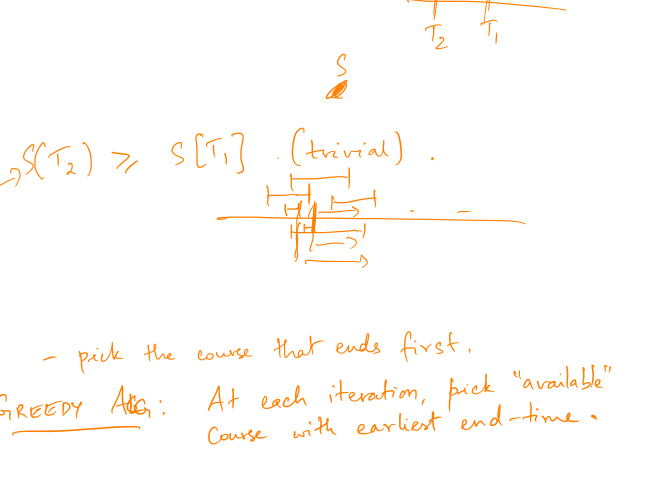 T₂ T₁
S
→ S(T₂) ≥ S[T₁] . (trivial) .
- pick the course that ends first.
GREEDY ALG: At each iteration, pick "available"
course with earliest end-time.